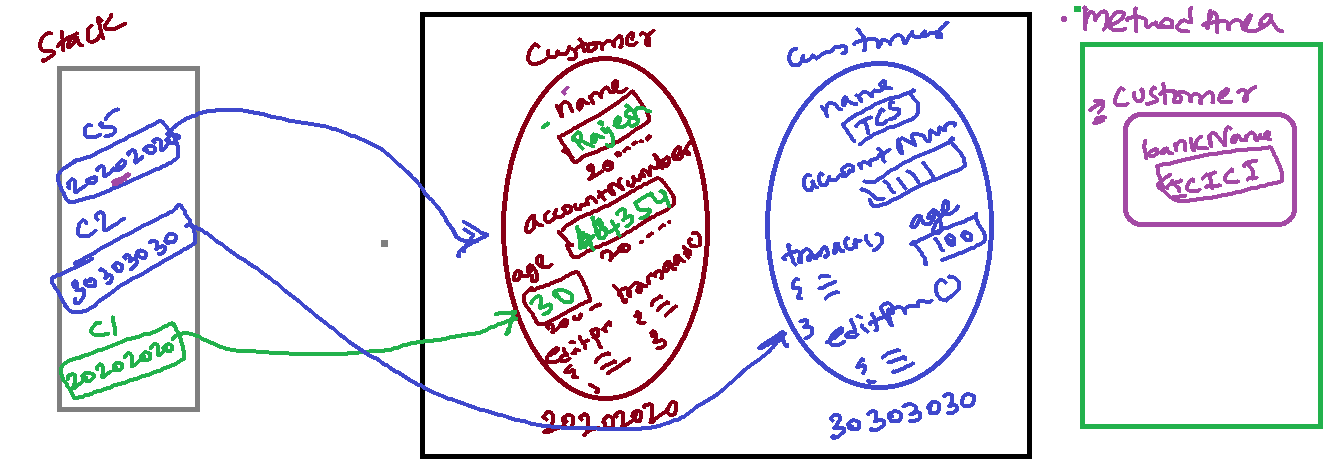 Stack
C5
20202020
C2
30303030
C1
20202020
Customer
name
Rajesh
20.....
accountNumber
44354
20.....
age
30
20....
transaction()
{
}
editpr
{
}
20202020
Customer
name
TCS
accountNum
1111
age
100
transact()
{
}
editprn()
{
30303030
Method Area
Customer
bankName
ICICI